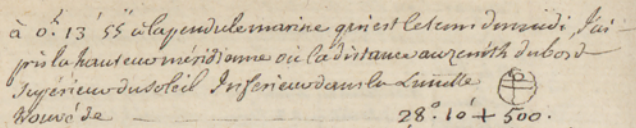 à 0.h 13' 55" à la pendule marine qui est le tems du midi, j'ai
pris la hauteur méridienne ou la distance au zenith du bord
supérieur du soleil Inferieur dans la Lunette
trouvé de 28.° 10' + 500.